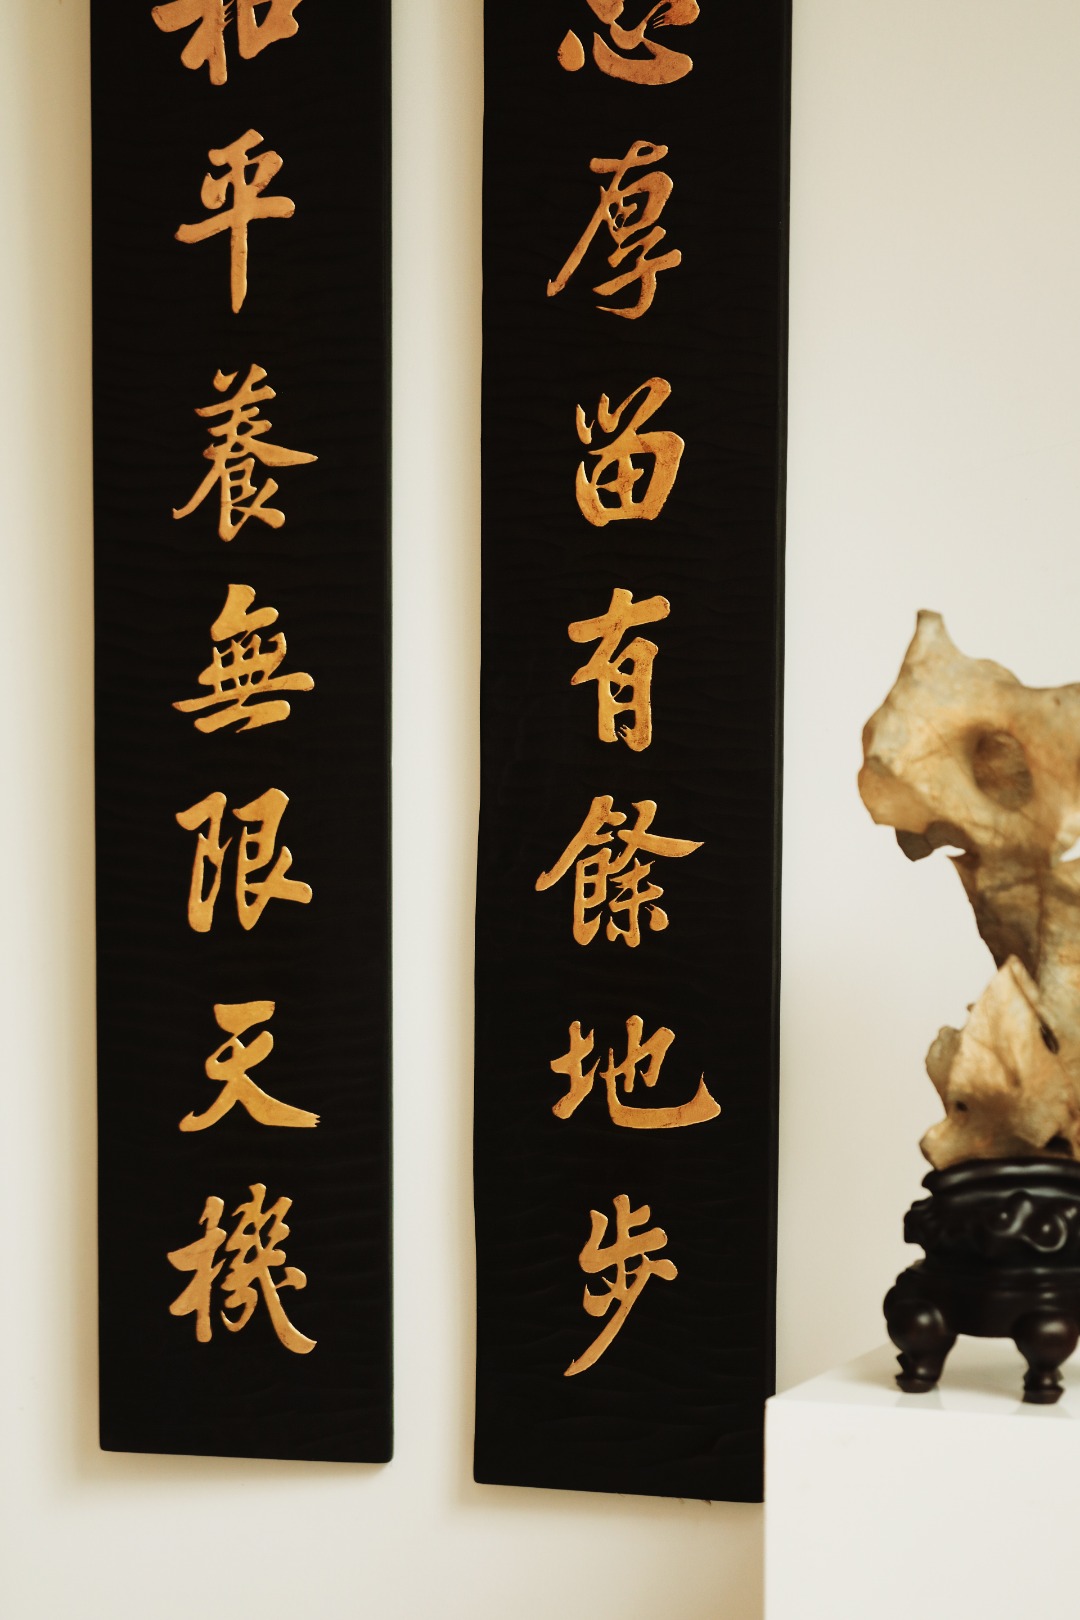 忠厚留有餘地步
和平養無限天機